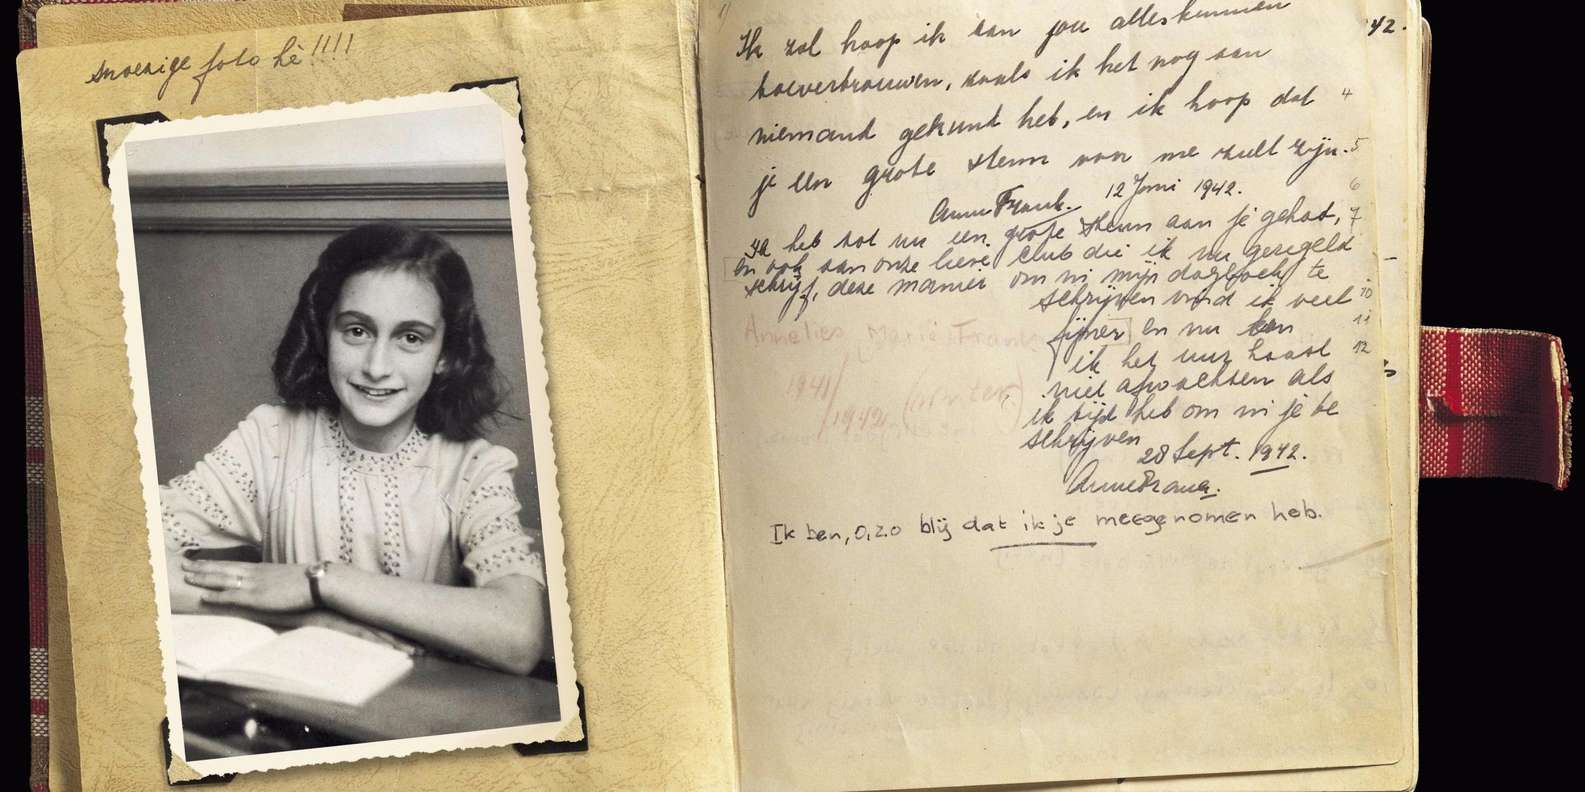 snoezige foto hè!!!!
Ik zal hoop ik aan jou alles kunnen
toevertrouwen, zoals ik het nog aan
niemand gekund heb, en ik hoop dat
je een grote steun voor me zult zijn.
Anne Frank. 12 Juni 1942.
Ik heb tot nu een grote steun aan je gehad,
en ook aan onze lieve club die ik nu geregeld
schrijf, deze manier om in mijn dagboek te
schrijven vind ik veel
fijner en nu kan
ik het uur haast
niet afwachten als
ik tijd heb om in je te
schrijven
28 Sept. 1942.
Anne Frank.
Ik ben, o, zo blij dat ik je meegenomen heb.
42.
4
5
6
7
10
11
12
Annelies Marie Frank
1941/
1942 (winter)